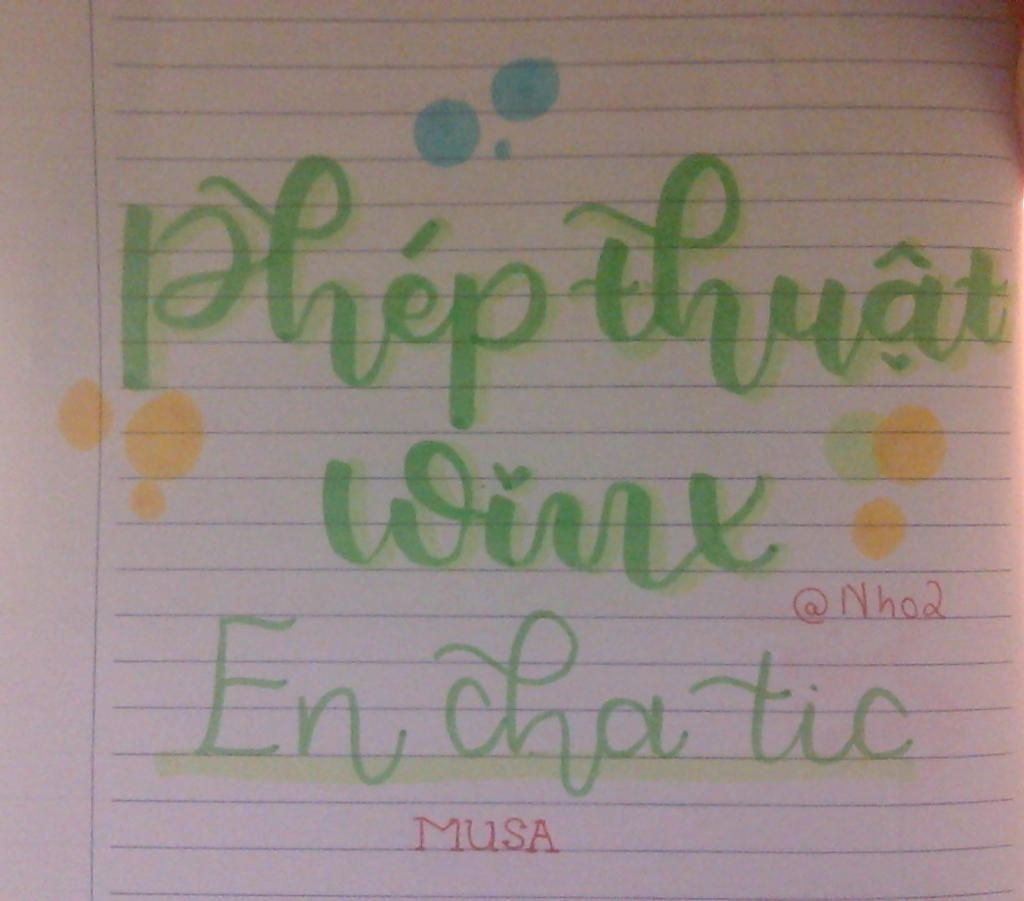 Phép thuật
winx
@Nho2
En cha tic
MUSA